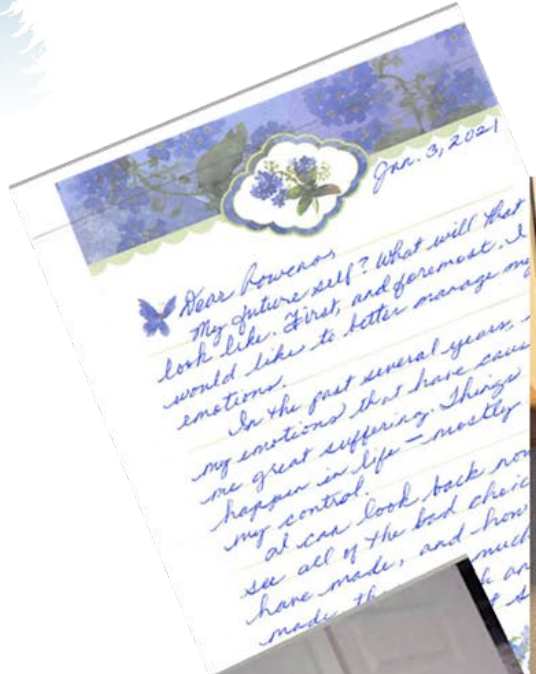 Jan. 3, 2021
Dear Rowena,
My future self? What will that
look like. First, and foremost, I
would like to better manage my
emotions.
In the past several years,
my emotions that have caus
me great suffering. Things
happen in life - mostly
my control.
I can look back now
see all of the bad choic
have made, and how
made th much